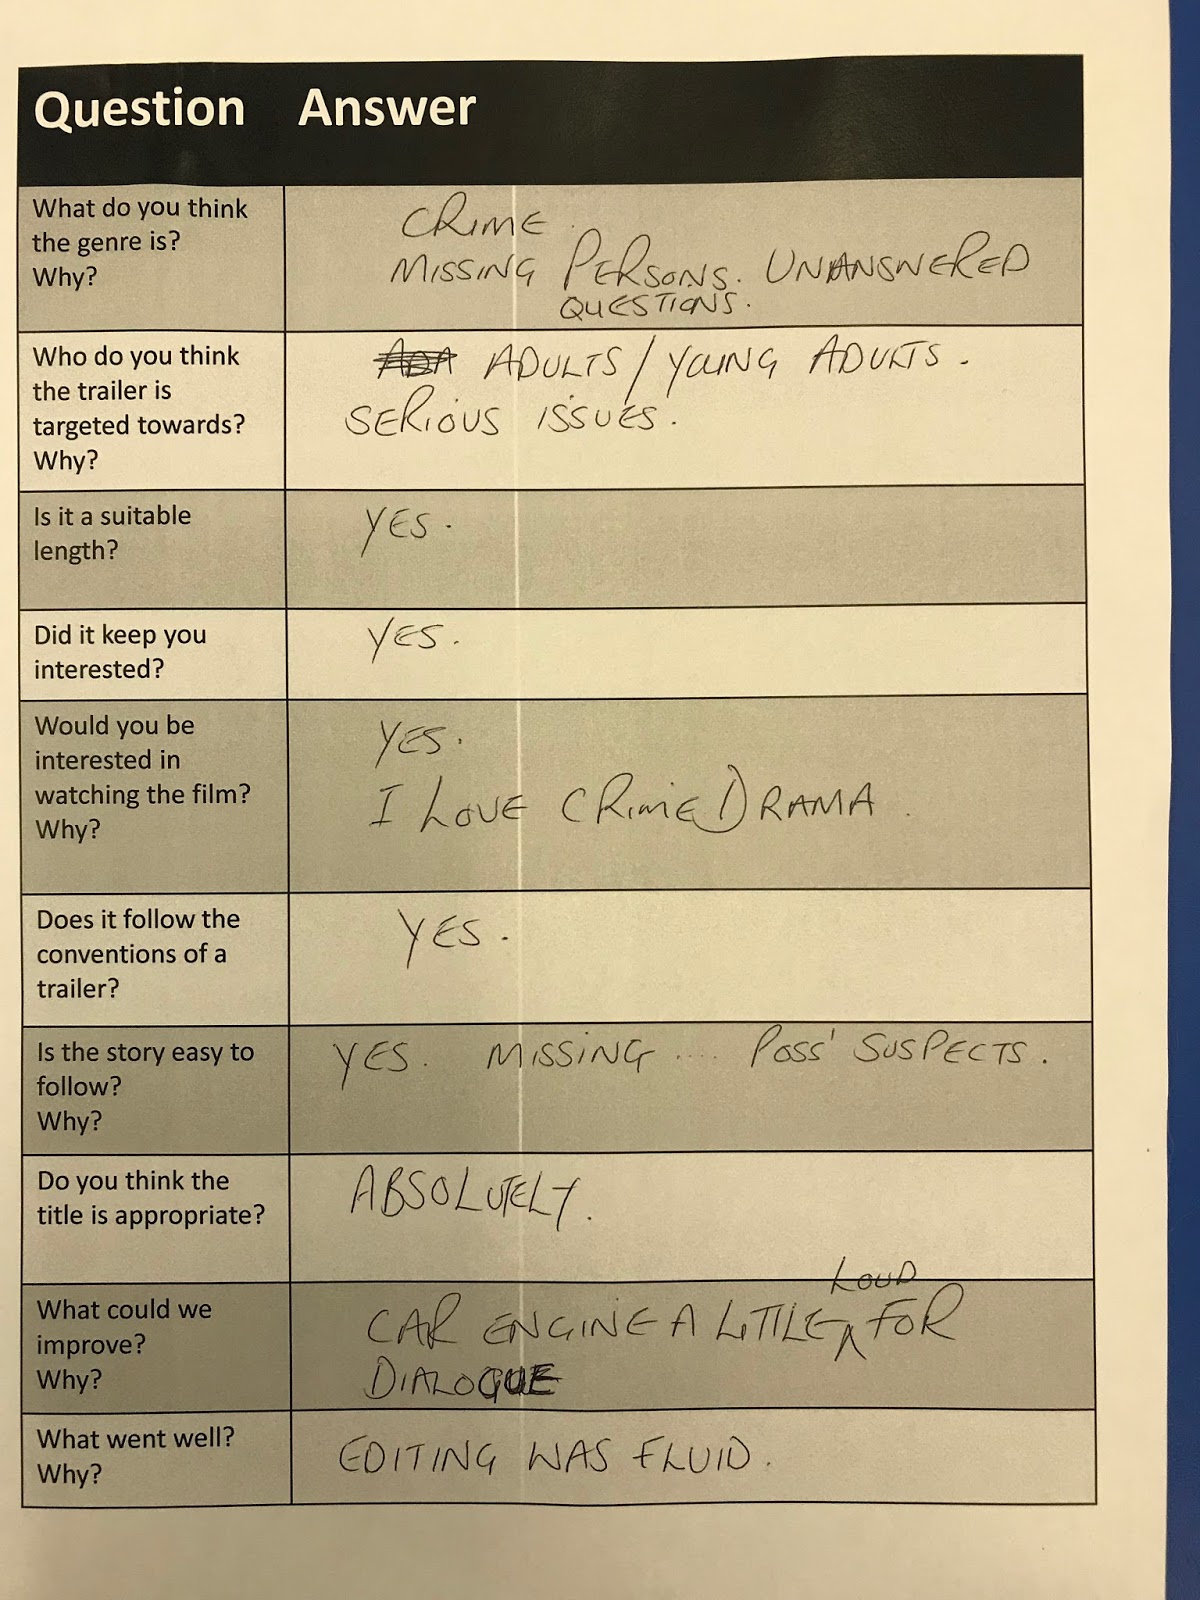 Question Answer
What do you think
the genre is?
Why?
CRIME.
MISSING PERSONS. UNANSWERED
QUESTIONS.
Who do you think
the trailer is
targeted towards?
Why?
ADULTS / YOUNG ADULTS.
SERIOUS ISSUES.
Is it a suitable
length?
YES.
Did it keep you
interested?
YES.
Would you be
interested in
watching the film?
Why?
YES.
I LOVE CRIME DRAMA.
Does it follow the
conventions of a
trailer?
YES.
Is the story easy to
follow?
Why?
YES. MISSING .... POSS' SUSPECTS.
Do you think the
title is appropriate?
ABSOLUTELY.
What could we
improve?
Why?
CAR ENGINE A LITTLE LOUD FOR
DIALOGUE
What went well?
Why?
EDITING WAS FLUID.